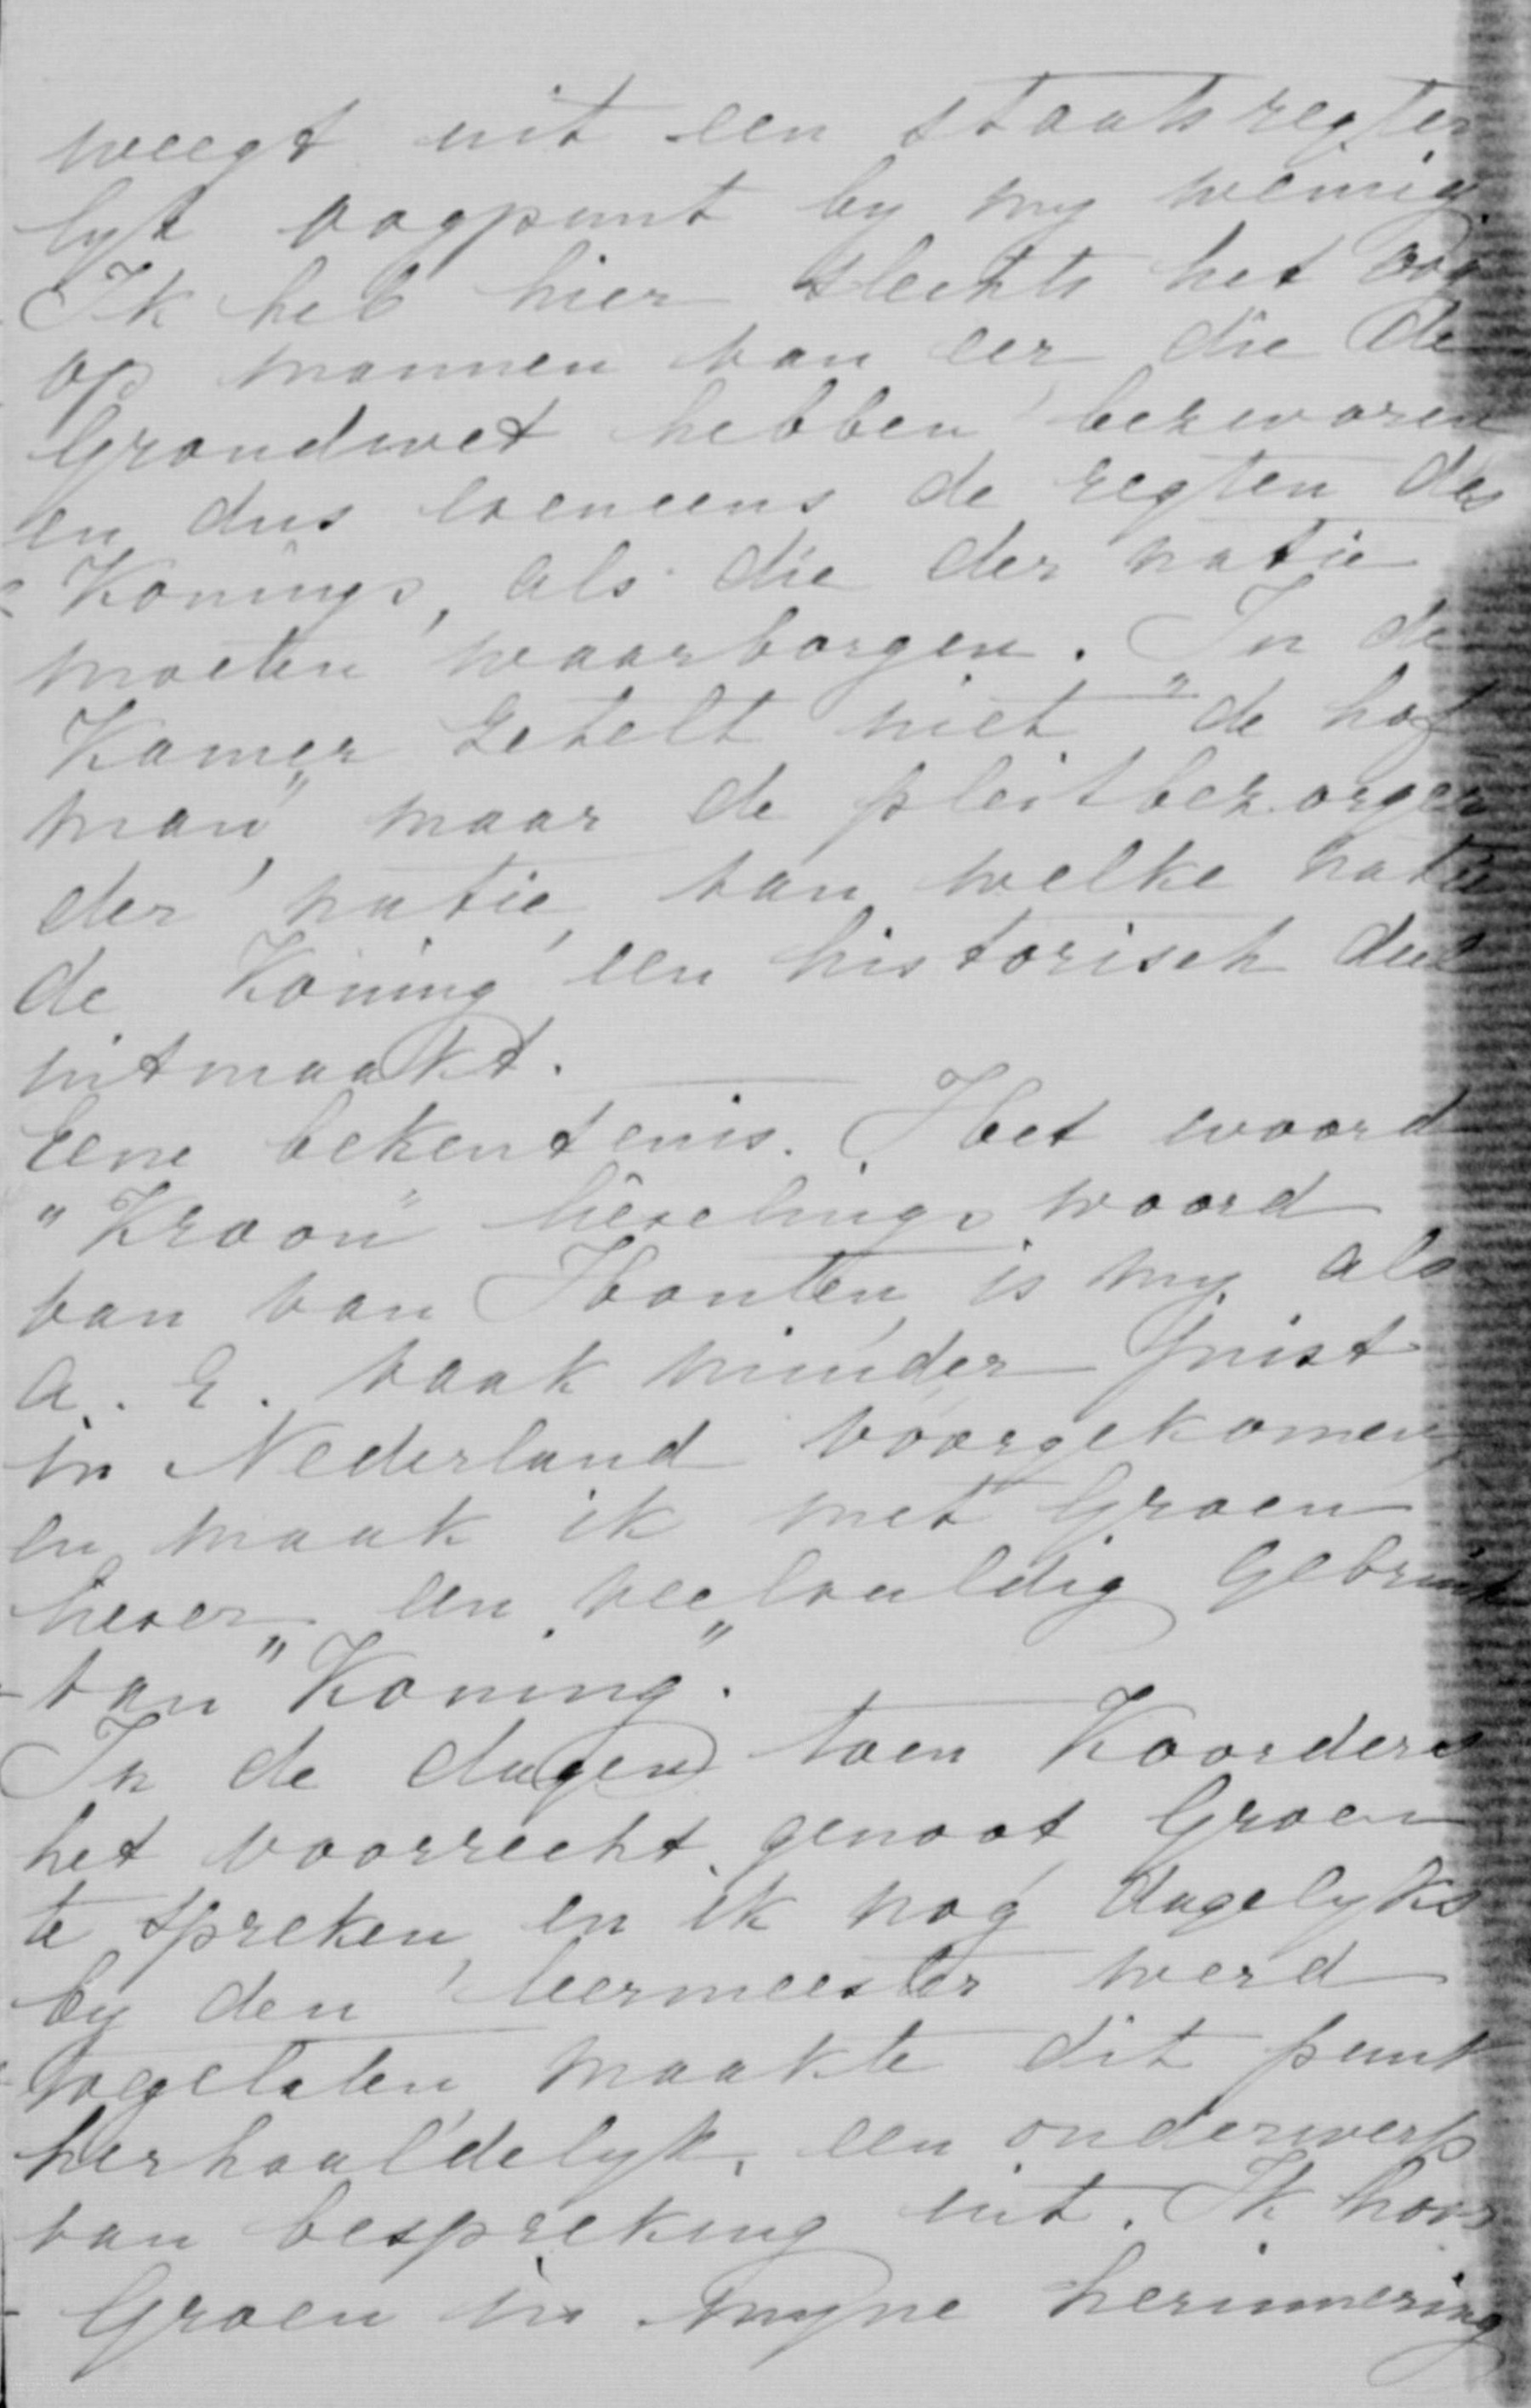 weegt uit een staatsregter
lyk oogpunt by my weinig.
Ik heb hier slechts het oog
op mannen van eer die de
Grondwet hebben bezworen
en dus eveneens de regten des
Konings, als die der natie
moeten waarborgen. In de
Kamer zetelt niet "de hof
man", maar de pleitbezorger
der natie, van welke natie
de Koning een historisch deel
uitmaakt.
Eene bekentenis. Het woord
"Kroon" lievelings woord
van van Houten, is my als
a. r. vaak minder juist
in Nederland voorgekomen,
en maak ik met Groen
liever een veelvuldig gebruik
van "Koning".
In de dagen toen Koorders
het voorrecht genoot Groen
te spreken, en ik nog dagelyks
by den leermeester werd
toegelaten, maakte dit punt
herhaaldelyk een onderwerp
van bespreking uit. Ik hoor
Groen in myne herinnering